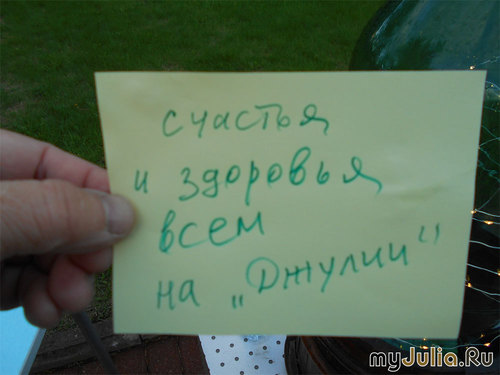 счастья
и здоровья
всем
на „Джулии“
myJulia.Ru